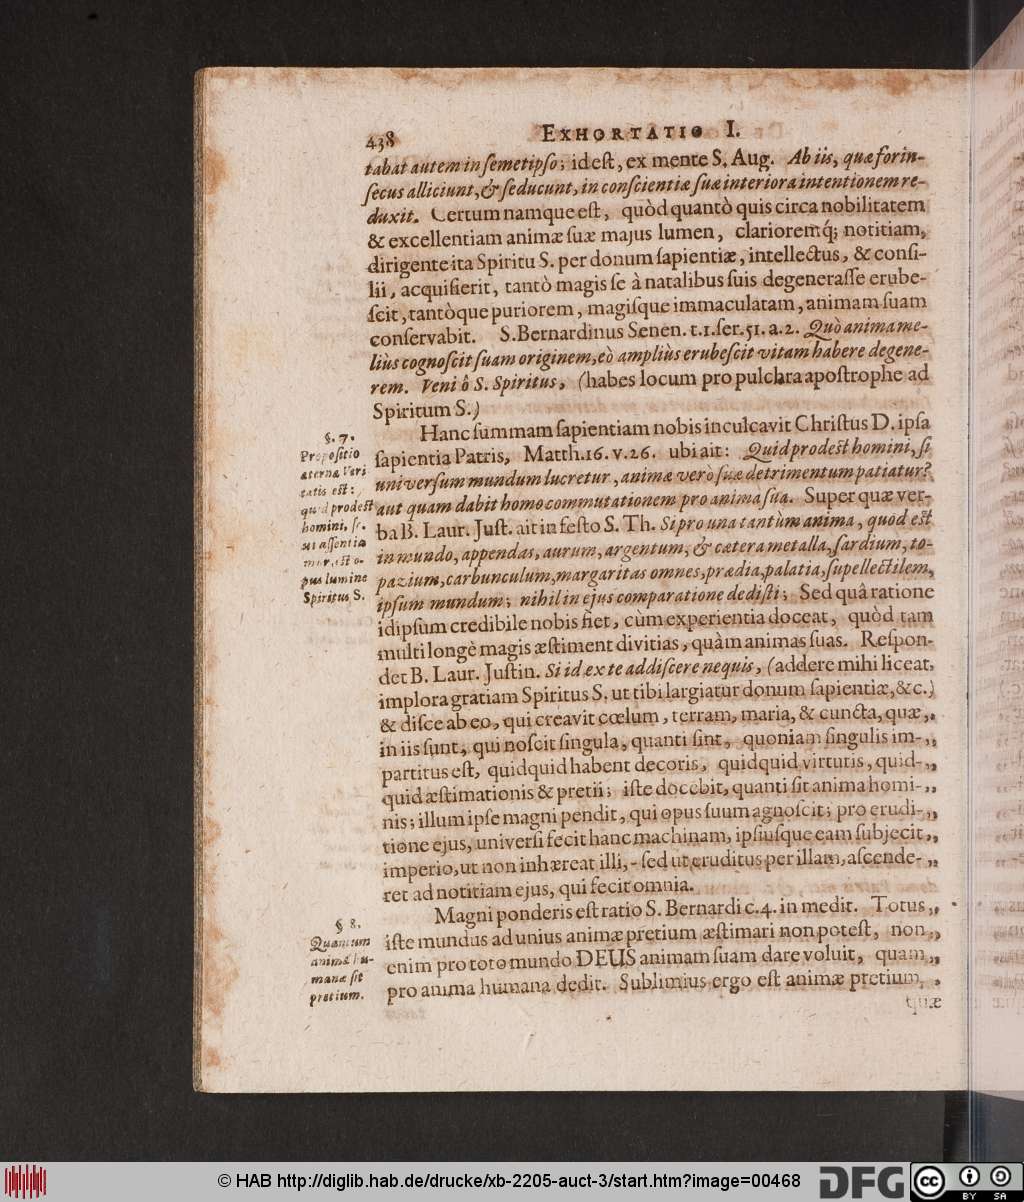 438 EXHORTATIO I.
tabat autem in ſemetipſo; id eſt, ex mente S. Aug. Ab iis, quæ forin-
ſecus alliciunt, & ſeducunt, in conſcientiæ ſuæ interiora intentionem re-
duxit. Certum namque eſt, quòd quantò quis circa nobilitatem
& excellentiam animæ ſuæ majus lumen, clarioremq́; notitiam,
dirigente ita Spiritu S. per donum ſapientiæ, intellectus, & conſi-
lii, acquiſierit, tantò magis ſe à natalibus ſuis degeneraſſe erube-
ſcit, tantòque puriorem, magiſque immaculatam, animam ſuam
conſervabit. S. Bernardinus Senen. t. 1. ſer. 51. a. 2. Quò anima me-
liùs cognoſcit ſuam originem, eò ampliùs erubeſcit vitam habere degene-
rem. Veni ô S. Spiritus, (habes locum pro pulchra apoſtrophe ad
Spiritum S.)
§. 7.
Propoſitio
æterna Veri
tatis eſt:
quid prodeſt
homini, ſi.
ut aſſentia
mur, eſt o-
pus lumine
Spiritus S.
Hanc ſummam ſapientiam nobis inculcavit Chriſtus D. ipſa
ſapientia Patris, Matth. 16. v. 26. ubi ait: Quid prodeſt homini, ſi
univerſum mundum lucretur, animæ verò ſuæ detrimentum patiatur?
aut quam dabit homo commutationem pro anima ſua. Super quæ ver-
ba B. Laur. Juſt. ait in feſto S. Th. Si pro una tantùm anima, quod eſt
in mundo, appendas, aurum, argentum, & cætera metalla, ſardium, to-
pazium, carbunculum, margaritas omnes, prædia, palatia, ſupellectilem,
ipſum mundum; nihil in ejus comparatione dediſti; Sed quâ ratione
idipſum credibile nobis fiet, cùm experientia doceat, quòd tam
multi longè magis æſtiment divitias, quàm animas ſuas. Reſpon-
det B. Laur. Juſtin. Si id ex te addiſcere nequis, (addere mihi liceat,
implora gratiam Spiritus S. ut tibi largiatur donum ſapientiæ, &c.)
& diſce ab eo, qui creavit cœlum, terram, maria, & cuncta, quæ,,
in iis ſunt, qui noſcit ſingula, quanti ſint, quoniam ſingulis im-,,
partitus eſt, quidquid habent decoris, quidquid virtutis, quid-,,
quid æſtimationis & pretii; iſte docebit, quanti ſit anima homi-,,
nis; illum ipſe magni pendit, qui opus ſuum agnoſcit; pro erudi-,,
tione ejus, univerſi fecit hanc machinam, ipſiuſque eam ſubjecit,,
imperio, ut non inhæreat illi, - ſed ut eruditus per illam, aſcende-,,
ret ad notitiam ejus, qui fecit omnia.
§ 8.
Quantum
anima hu-
manæ ſit
pretium.
Magni ponderis eſt ratio S. Bernardi c. 4. in medit. Totus,,
iſte mundus ad unius animæ pretium æſtimari non poteſt, non,,
enim pro toto mundo DEUS animam ſuam dare voluit, quam,,
pro anima humana dedit. Sublimius ergo eſt animæ pretium,,
quæ
© HAB http://diglib.hab.de/drucke/xb-2205-auct-3/start.htm?image=00468
DFG
cc
BY SA